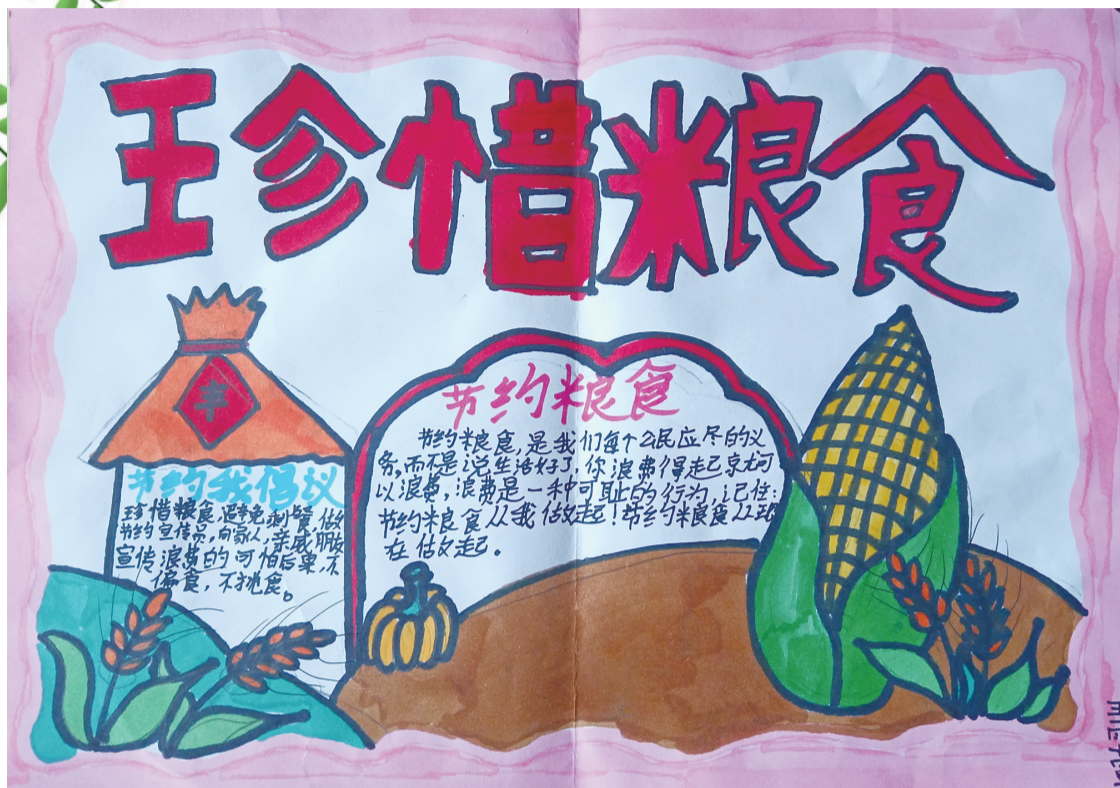 珍惜粮食
丰
节约我倡议
珍惜粮食,避免剩餐,做
节约宣传员,向家人,亲戚朋友
宣传浪费的可怕后果,不
偏食,不挑食。
节约粮食
节约粮食,是我们每个公民应尽的义
务,而不是说生活好了,你浪费得起就可
以浪费,浪费是一种可耻的行为,记住:
节约粮食从我做起!节约粮食从现
在做起。